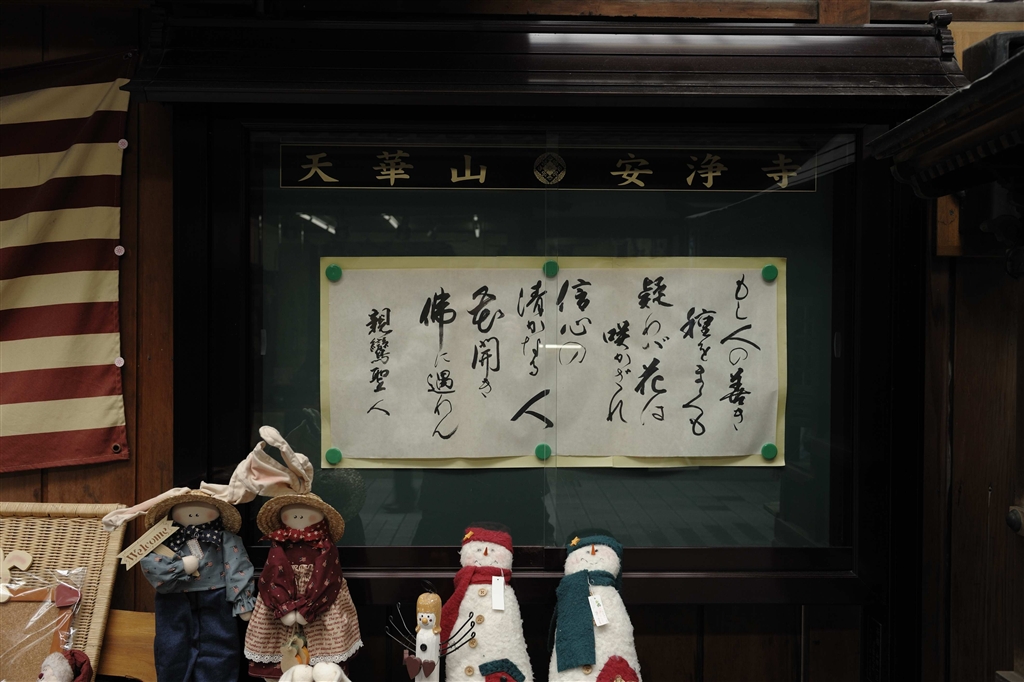 天華山 安浄寺
もし人の善き
種をまくも
疑わば花は
咲かざれ
信心の
清かなる人
花開き
佛に遇わん
親鸞聖人
Welcome